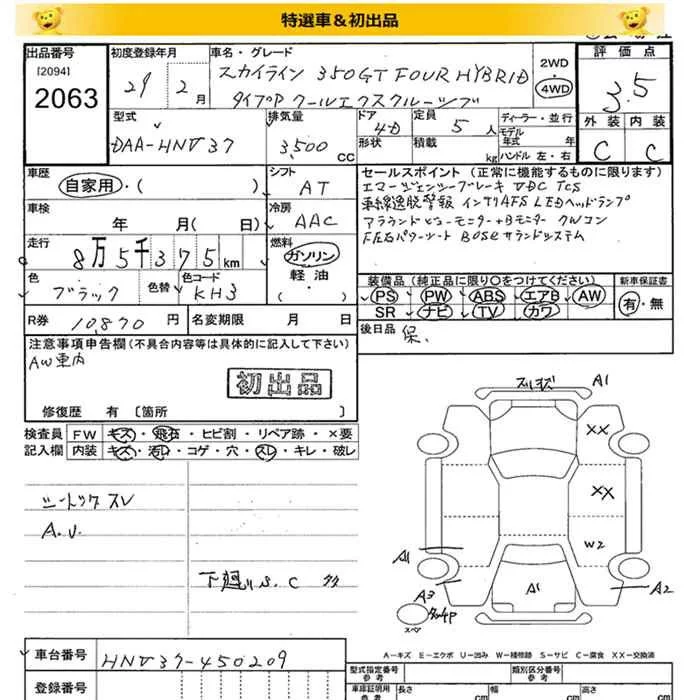 特選車&初出品
出品番号
[2094]
2063
初度登録年月
29 年 2 月
車名・グレード
スカイライン 350GT FOUR HYBRID
タイプP クールエクスクルーシブ
2WD
4WD
評価点
3.5
外装 内装
C C
型式
DAA-HNV37
排気量
3,500 CC
ドア
4D
形状
定員
5 人
積載
kg
ディーラー・並行
モデル年式 年
ハンドル 左・右
車歴
自家用・( )
シフト
AT
車検
年 月( 日)
冷房
AAC
走行
8万5千375km
燃料
ガソリン
軽油
( )
色
ブラック
色替
色コード
KH3
R券 10,870 円
名変期限 月 日
セールスポイント(正常に機能するものに限ります)
エマージェンシーブレーキ VDC TCS
車線逸脱警報 インテリAFS LEDヘッドランプ
アラウンドビューモニター+Bモニター クルコン
F左右パワーシート BOSEサウンドシステム
装備品(純正品に限り○をつけてください)
PS PW ABS エアB AW
SR ナビ TV カワ
新車保証書
有・無
後日品 保.
注意事項申告欄(不具合内容等は具体的に記入して下さい)
AW車内
初出品
修復歴 有 〔箇所 〕
検査員 FW キズ・飛石・ヒビ割・リペア跡・×要
記入欄 内装 キズ・汚レ・コゲ・穴・スレ・キレ・破レ
シートリクスレ
A.U.
下廻り S.C 多
スリキズ A1
XX
XX
W2
A1
A1
A2
A3
スペア
A-キズ E-エクボ U-凹み W-補修跡 S-サビ C-腐食 XX-交換済
車台番号 HNV37-450209
登録番号
型式指定番号
類別区分番号
車庫証明用参考
長さ cm
幅 cm
高さ cm